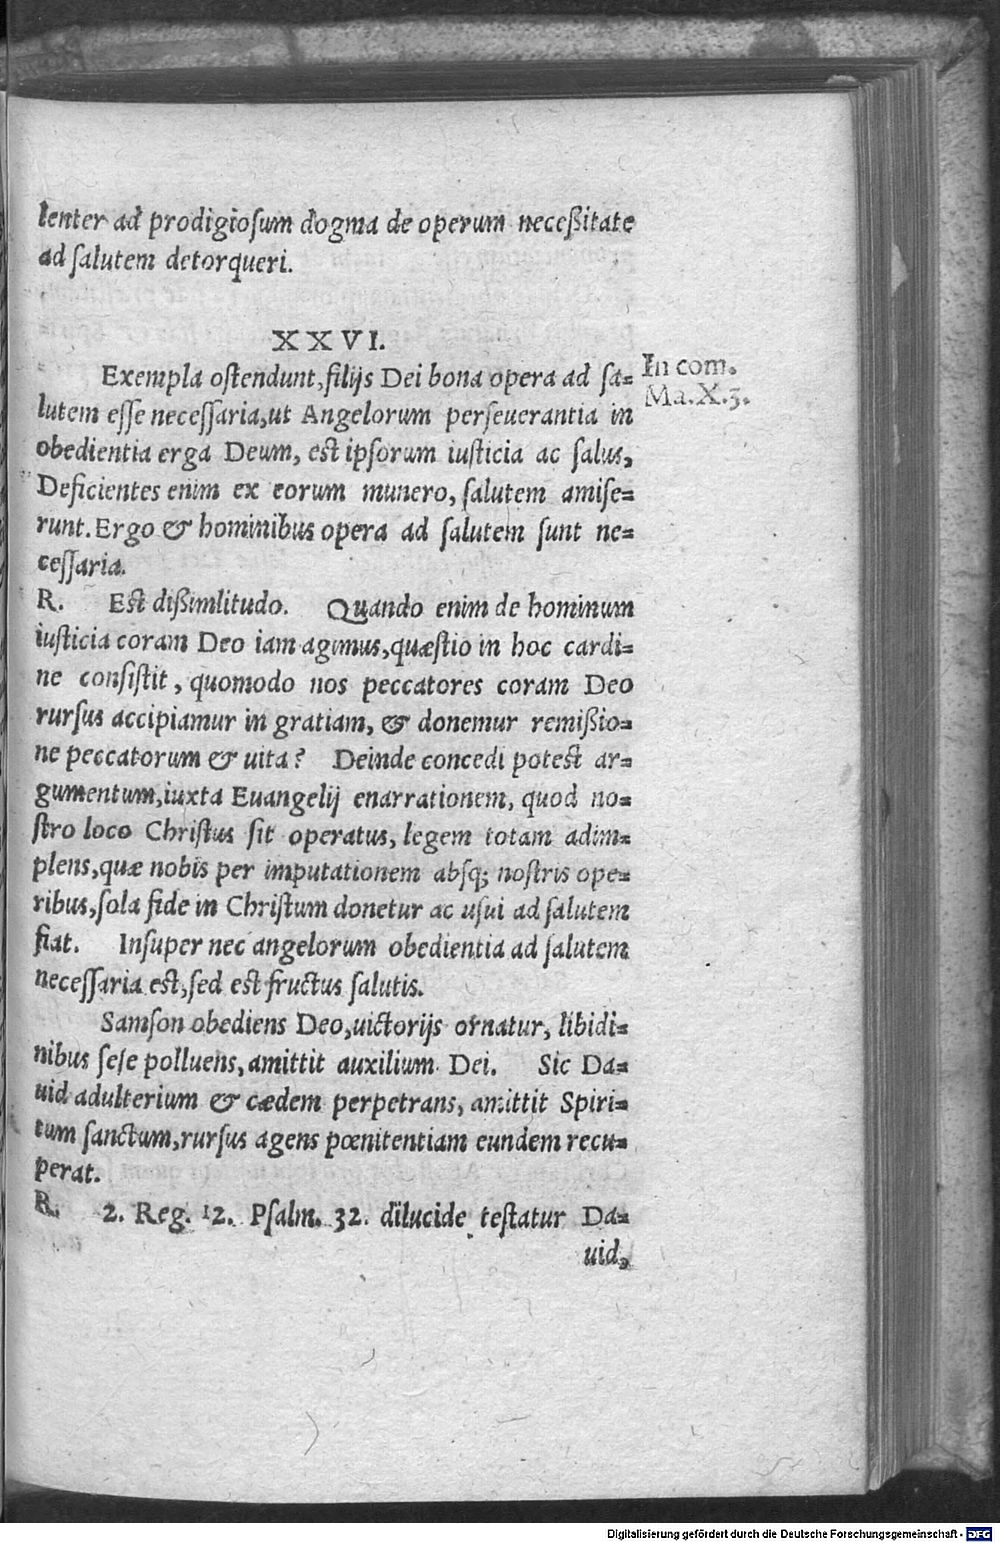 lenter ad prodigiosum dogma de operum neceßitate
ad salutem detorqueri.
XXVI.
Exempla ostendunt, filijs Dei bona opera ad sa=
lutem esse necessaria, ut Angelorum perseuerantia in
obedientia erga Deum, est ipsorum iusticia ac salus,
Deficientes enim ex eorum munero, salutem amise=
runt. Ergo & hominibus opera ad salutem sunt ne=
cessaria.
In com.
Ma. X. 3.
R. Est dißimlitudo. Quando enim de hominum
iusticia coram Deo iam agimus, quæstio in hoc cardi=
ne consistit, quomodo nos peccatores coram Deo
rursus accipiamur in gratiam, & donemur remißio=
ne peccatorum & uita? Deinde concedi potest ar=
gumentum, iuxta Euangelij enarrationem, quod no=
stro loco Christus sit operatus, legem totam adim=
plens, quæ nobis per imputationem absq; nostris ope=
ribus, sola fide in Christum donetur ac usui ad salutem
fiat. Insuper nec angelorum obedientia ad salutem
necessaria est, sed est fructus salutis.
Samson obediens Deo, uictorijs ornatur, libidi=
nibus sese polluens, amittit auxilium Dei. Sic Da=
uid adulterium & cædem perpetrans, amittit Spiri=
tum sanctum, rursus agens pœnitentiam eundem recu=
perat.
R. 2. Reg. 12. Psalm. 32. dilucide testatur Da=
uid,
Digitalisierung gefördert durch die Deutsche Forschungsgemeinschaft - DFG